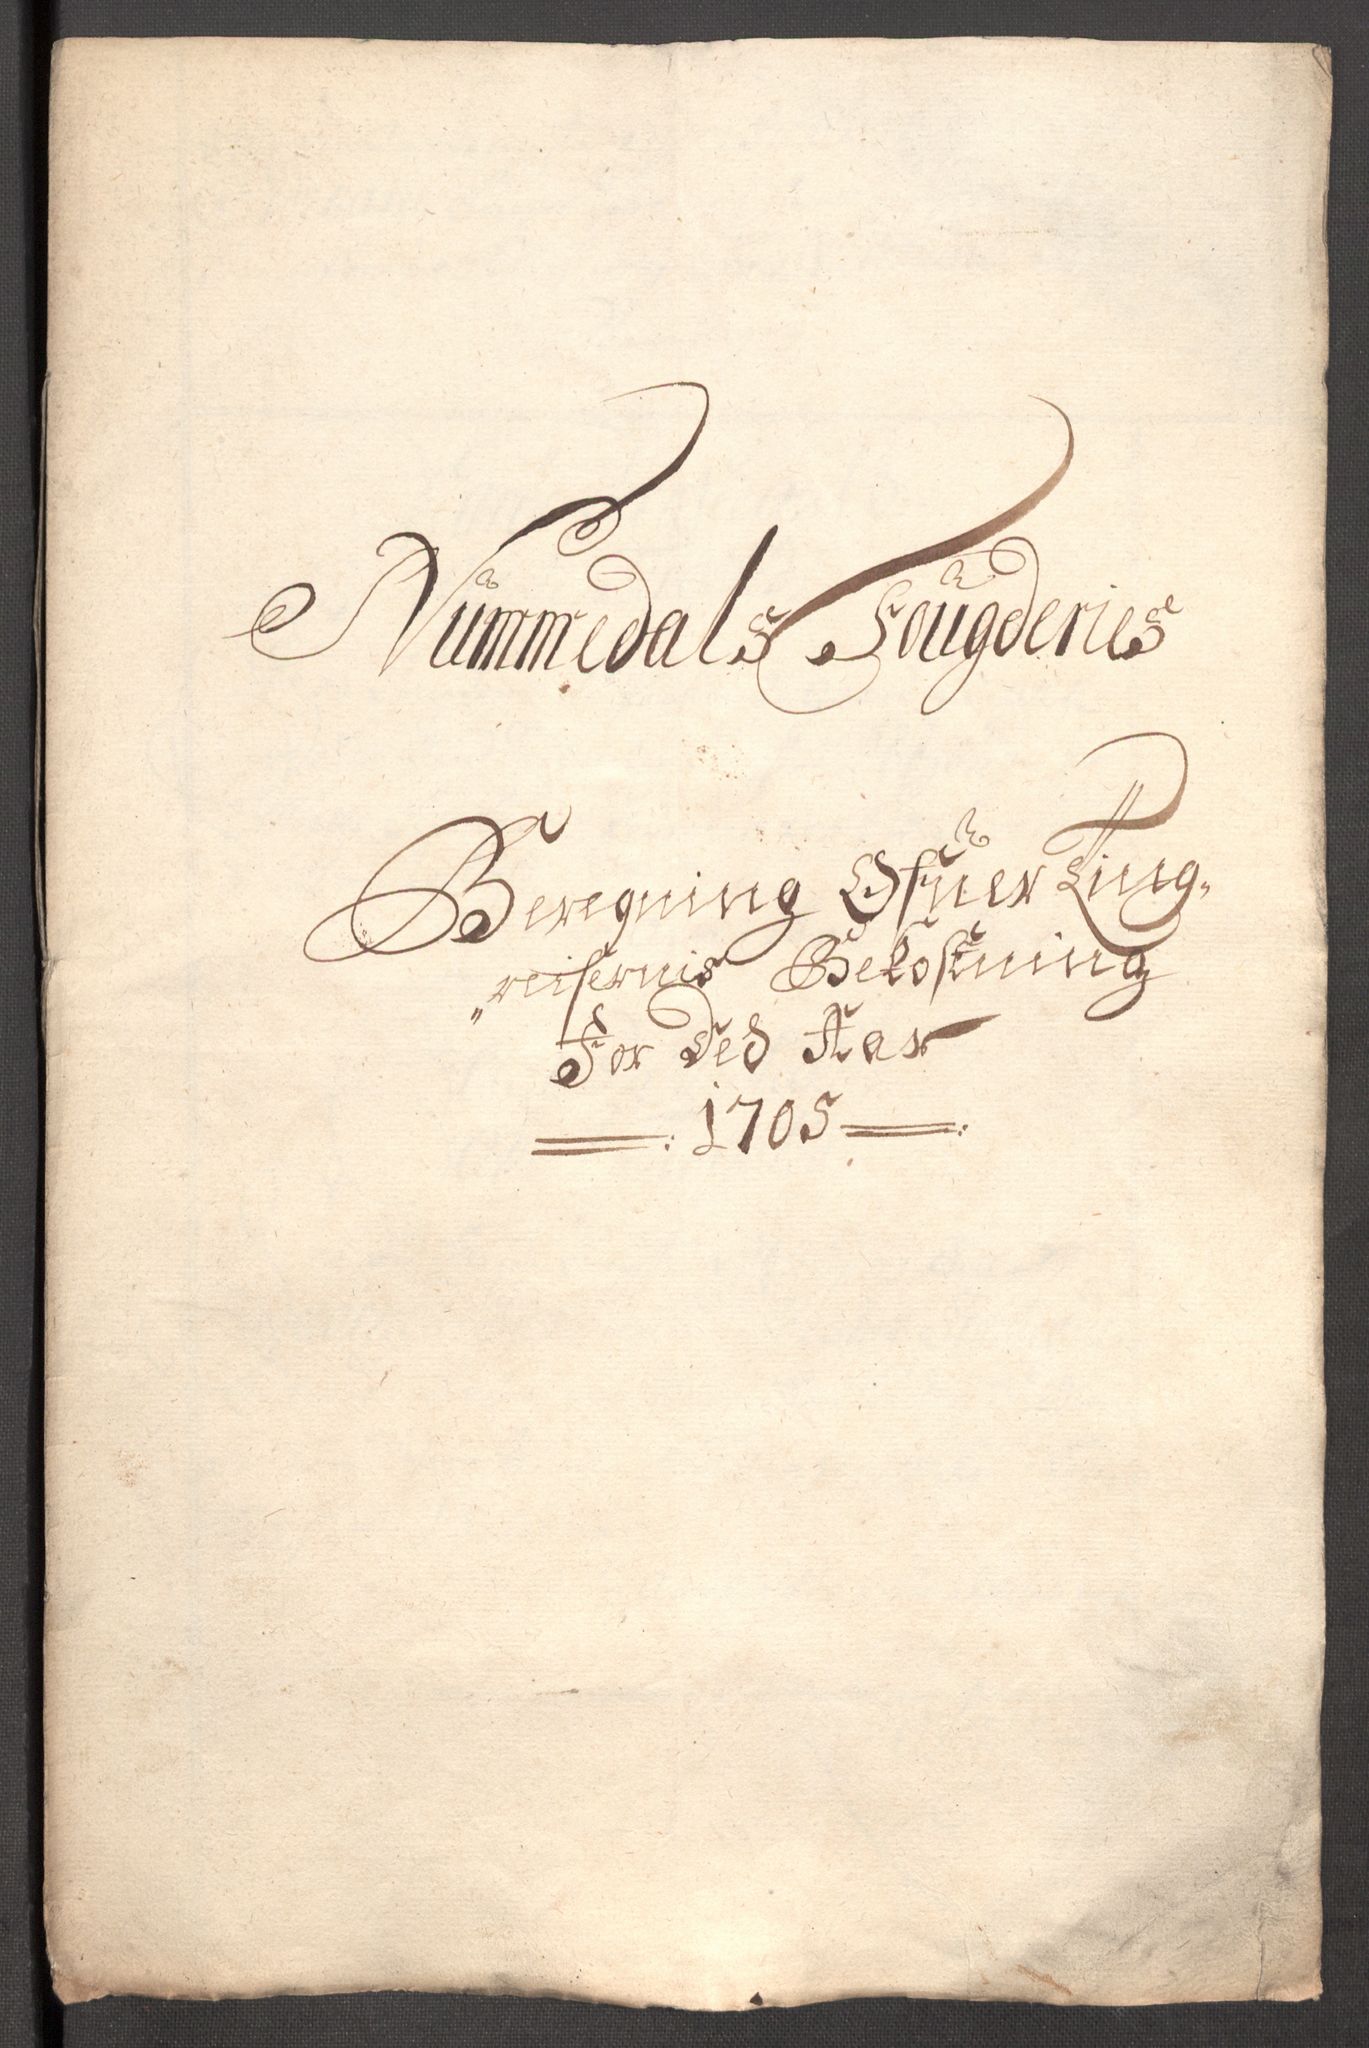 Nummedals Fougderies
Beregning Ofuer Ting„
„reisernis Bekostning
For Ded Aar
1705